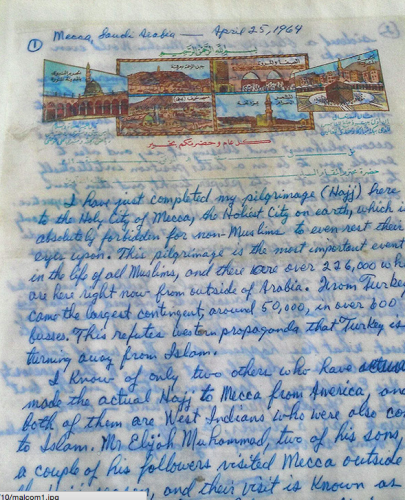 ① Mecca, Saudi Arabia — April 25, 1964
بسم الله الرحمن الرحيم
كل عام وحضرتكم بخير
I have just completed my pilgrimage (Hajj) here
to the Holy City of Mecca, the Holiest City on earth, which is
absolutely forbidden for non-Muslims to even rest their
eyes upon. This pilgrimage is the most important event
in the life of all Muslims, and there were over 226,000 who
are here right now from outside of Arabia. From Turkey
came the largest contingent, around 50,000, in over 600
busses. This refutes western propaganda that Turkey is
turning away from Islam.
I know of only two others who have actua
made the actual Hajj to Mecca from America, and
both of them are West Indians who were also co
to Islam. Mr Elijah Muhammad, two of his sons,
a couple of his followers visited Mecca outside
and their visit is known as
10/malcom1.jpg